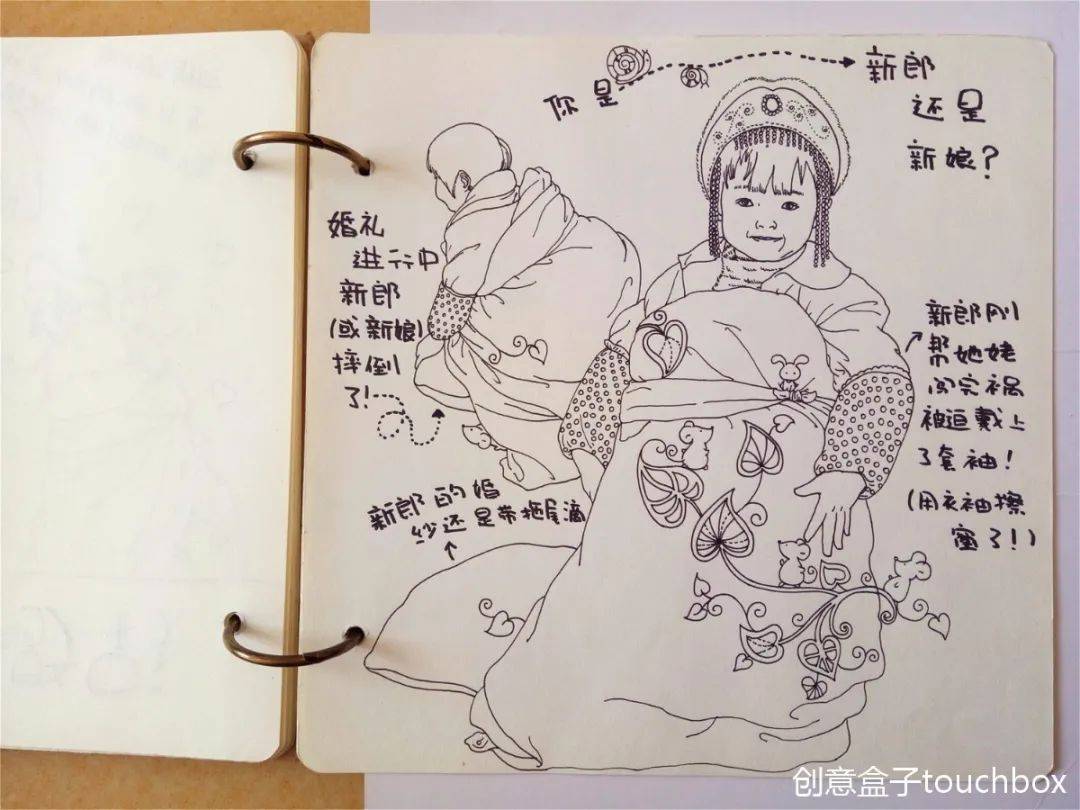 你是
新郎
还是
新娘?
婚礼
进行中
新郎
(或新娘)
摔倒
了!
新郎的婚
纱还是带拖尾滴
新郎刚
帮她姥
闯完祸
被逼戴上
了套袖!
(用衣袖擦
了!)
创意盒子touchbox